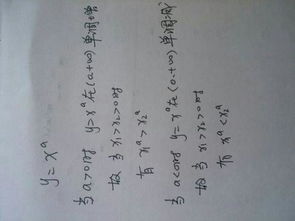 y = xᵃ
当 a>0时 y=xᵃ在(0,+∞)单调增
故当 x₁>x₂>0时
有 x₁ᵃ>x₂ᵃ
当 a<0时 y=xᵃ在(0,+∞)单调减
故当 x₁>x₂>0时
有 x₁ᵃ<x₂ᵃ